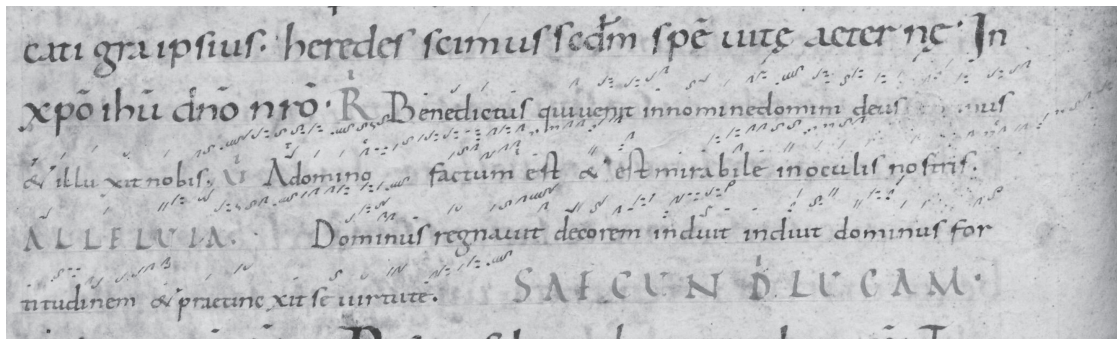 cati gra ipsius. heredes scimus scdm̄ spē uitę aeternę. In
xpō ihū dnō nrō. R Benedictus qui uenit in nomine domini deus nus
& illuxit nobis. A domino factum est & est mirabile in oculis nostris.
ALLELUIA. Dominus regnauit decorem induit induit dominus for
titudinem & praecinxit se uirtute. SAECUND LUCAM.